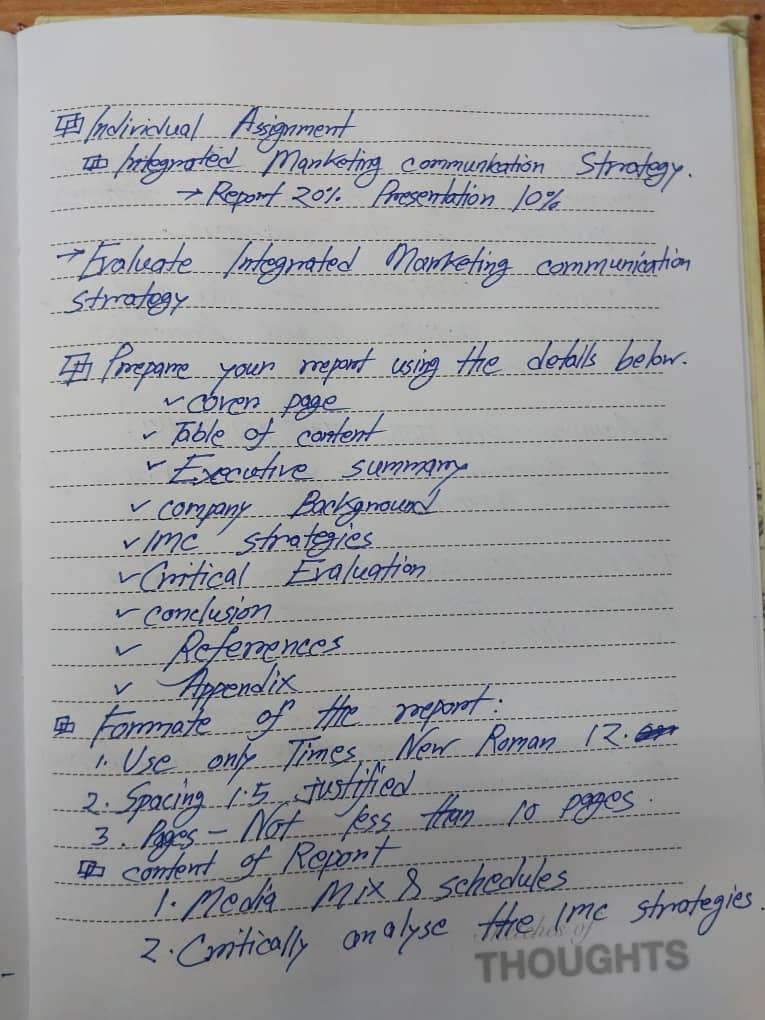 Individual Assignment
Integrated Marketing communication Strategy.
→ Report 20% Presentation 10%
→ Evaluate Integrated Marketing communication
strategy
Prepare your report using the details below.
✓ cover page
✓ Table of content
✓ Executive summary
✓ company Background
✓ IMC strategies
✓ Critical Evaluation
✓ conclusion
✓ References
✓ Appendix
Formate of the report:
1. Use only Times New Roman 12.
2. Spacing 1.5 justified
3. Pages - Not less than 10 pages.
content of Report
1. Media Mix & schedules
2. Critically analyse the IMC strategies.
THOUGHTS